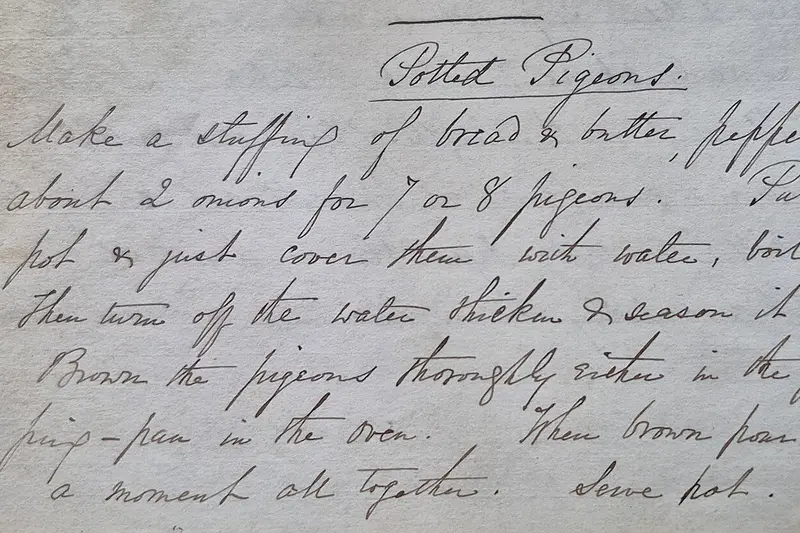 Potted Pigeons.
Make a stuffing of bread & butter, peppe
about 2 onions for 7 or 8 pigeons. Pu
pot & just cover them with water, boil
then turn off the water thicken & season it
Brown the pigeons thoroughly either in the
ping-pan in the oven. When brown pour
a moment all together. Serve hot.